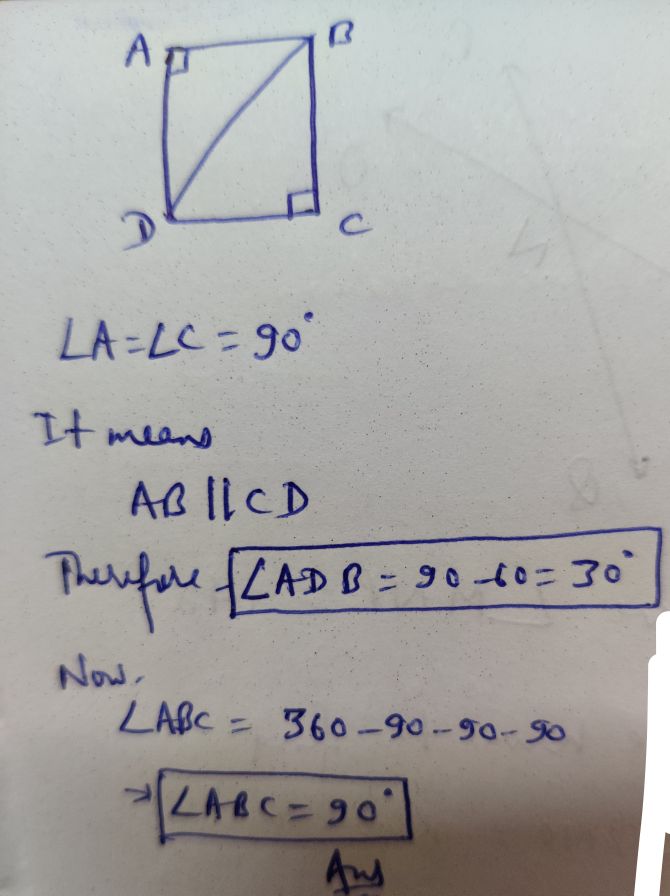 A B
D C
∠A=∠C=90°
It means
AB || CD
Therefore ∠ADB = 90-60= 30°
Now.
∠ABC = 360-90-90-90
→ ∠ABC = 90°
Ans